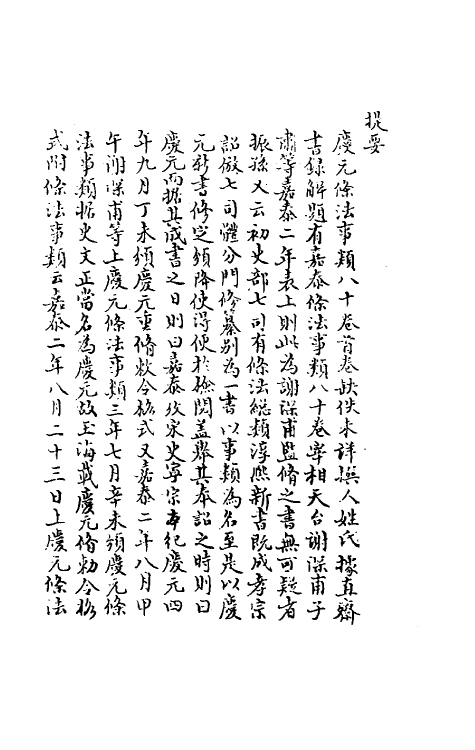 提要
慶元條法事類八十卷首卷缺佚未詳撰人姓氏據直齋
書錄解題有嘉泰條法事類八十卷宰相天台謝深甫子
肅等嘉泰二年表上則此為謝深甫監脩之書無可疑者
振孫又云初吏部七司有條法總類淳熙新書既成孝宗
詔倣七司體分門修纂別為一書以事類為名至是以慶
元新書修定頒降使得便於檢閱蓋舉其奉詔之時則曰
慶元而據其成書之日則曰嘉泰攷宋史寧宗本紀慶元四
年九月丁未頒慶元重脩敕令格式又嘉泰二年八月甲
午謝深甫等上慶元條法事類三年七月辛未頒慶元條
法事類據史文正當名為慶元故玉海載慶元脩勅令格
式附條法事類云嘉泰二年八月二十三日上慶元條法